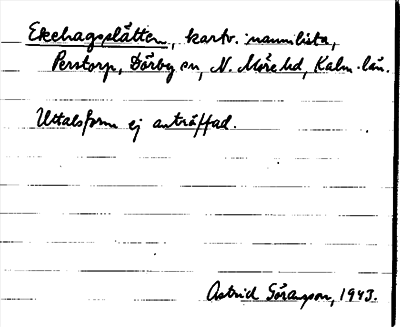 Ekehagsslätten, kartv. namnlista,
Perstorp, Dörby sn, N. Möre hd, Kalm. län.
Uttalsform ej anträffad.
Astrid Göransson, 1943.